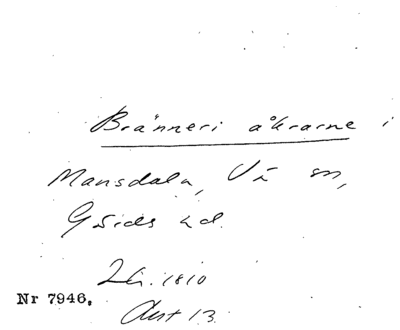 Bränneri åkrarne i
Mansdala, Vä sn,
Gärds hd.
Lh. 1810
Nr 7946.
Akt 13.